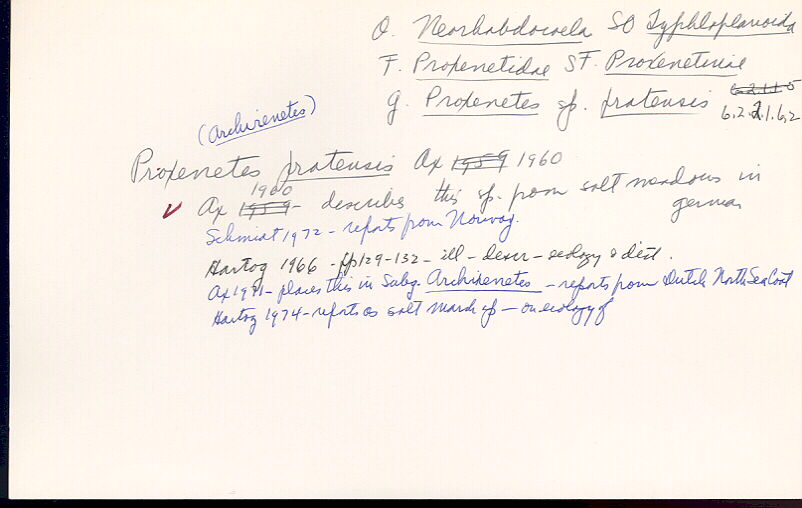 O. Neorhabdocoela SO Typhloplanoida
F. Proxenetidae SF. Proxenetinae
6.2.11.5
g. Proxenetes sp. pratensis 6.2.2.1.6.2
(Archixenetes)
Proxenetes pratensis Ax 1959 1960
1960
✓ Ax 1959 - describes this sp. from salt meadows in
german
Schmidt 1972 - reports from Norway.
Hartog 1966 - pp129-132 - ill - descr - ecology & dist.
Ax 1971 - places this in Subg. Archixenetes - reports from Dutch North Sea Coast
Hartog 1974 - reports as salt marsh sp - on ecology of